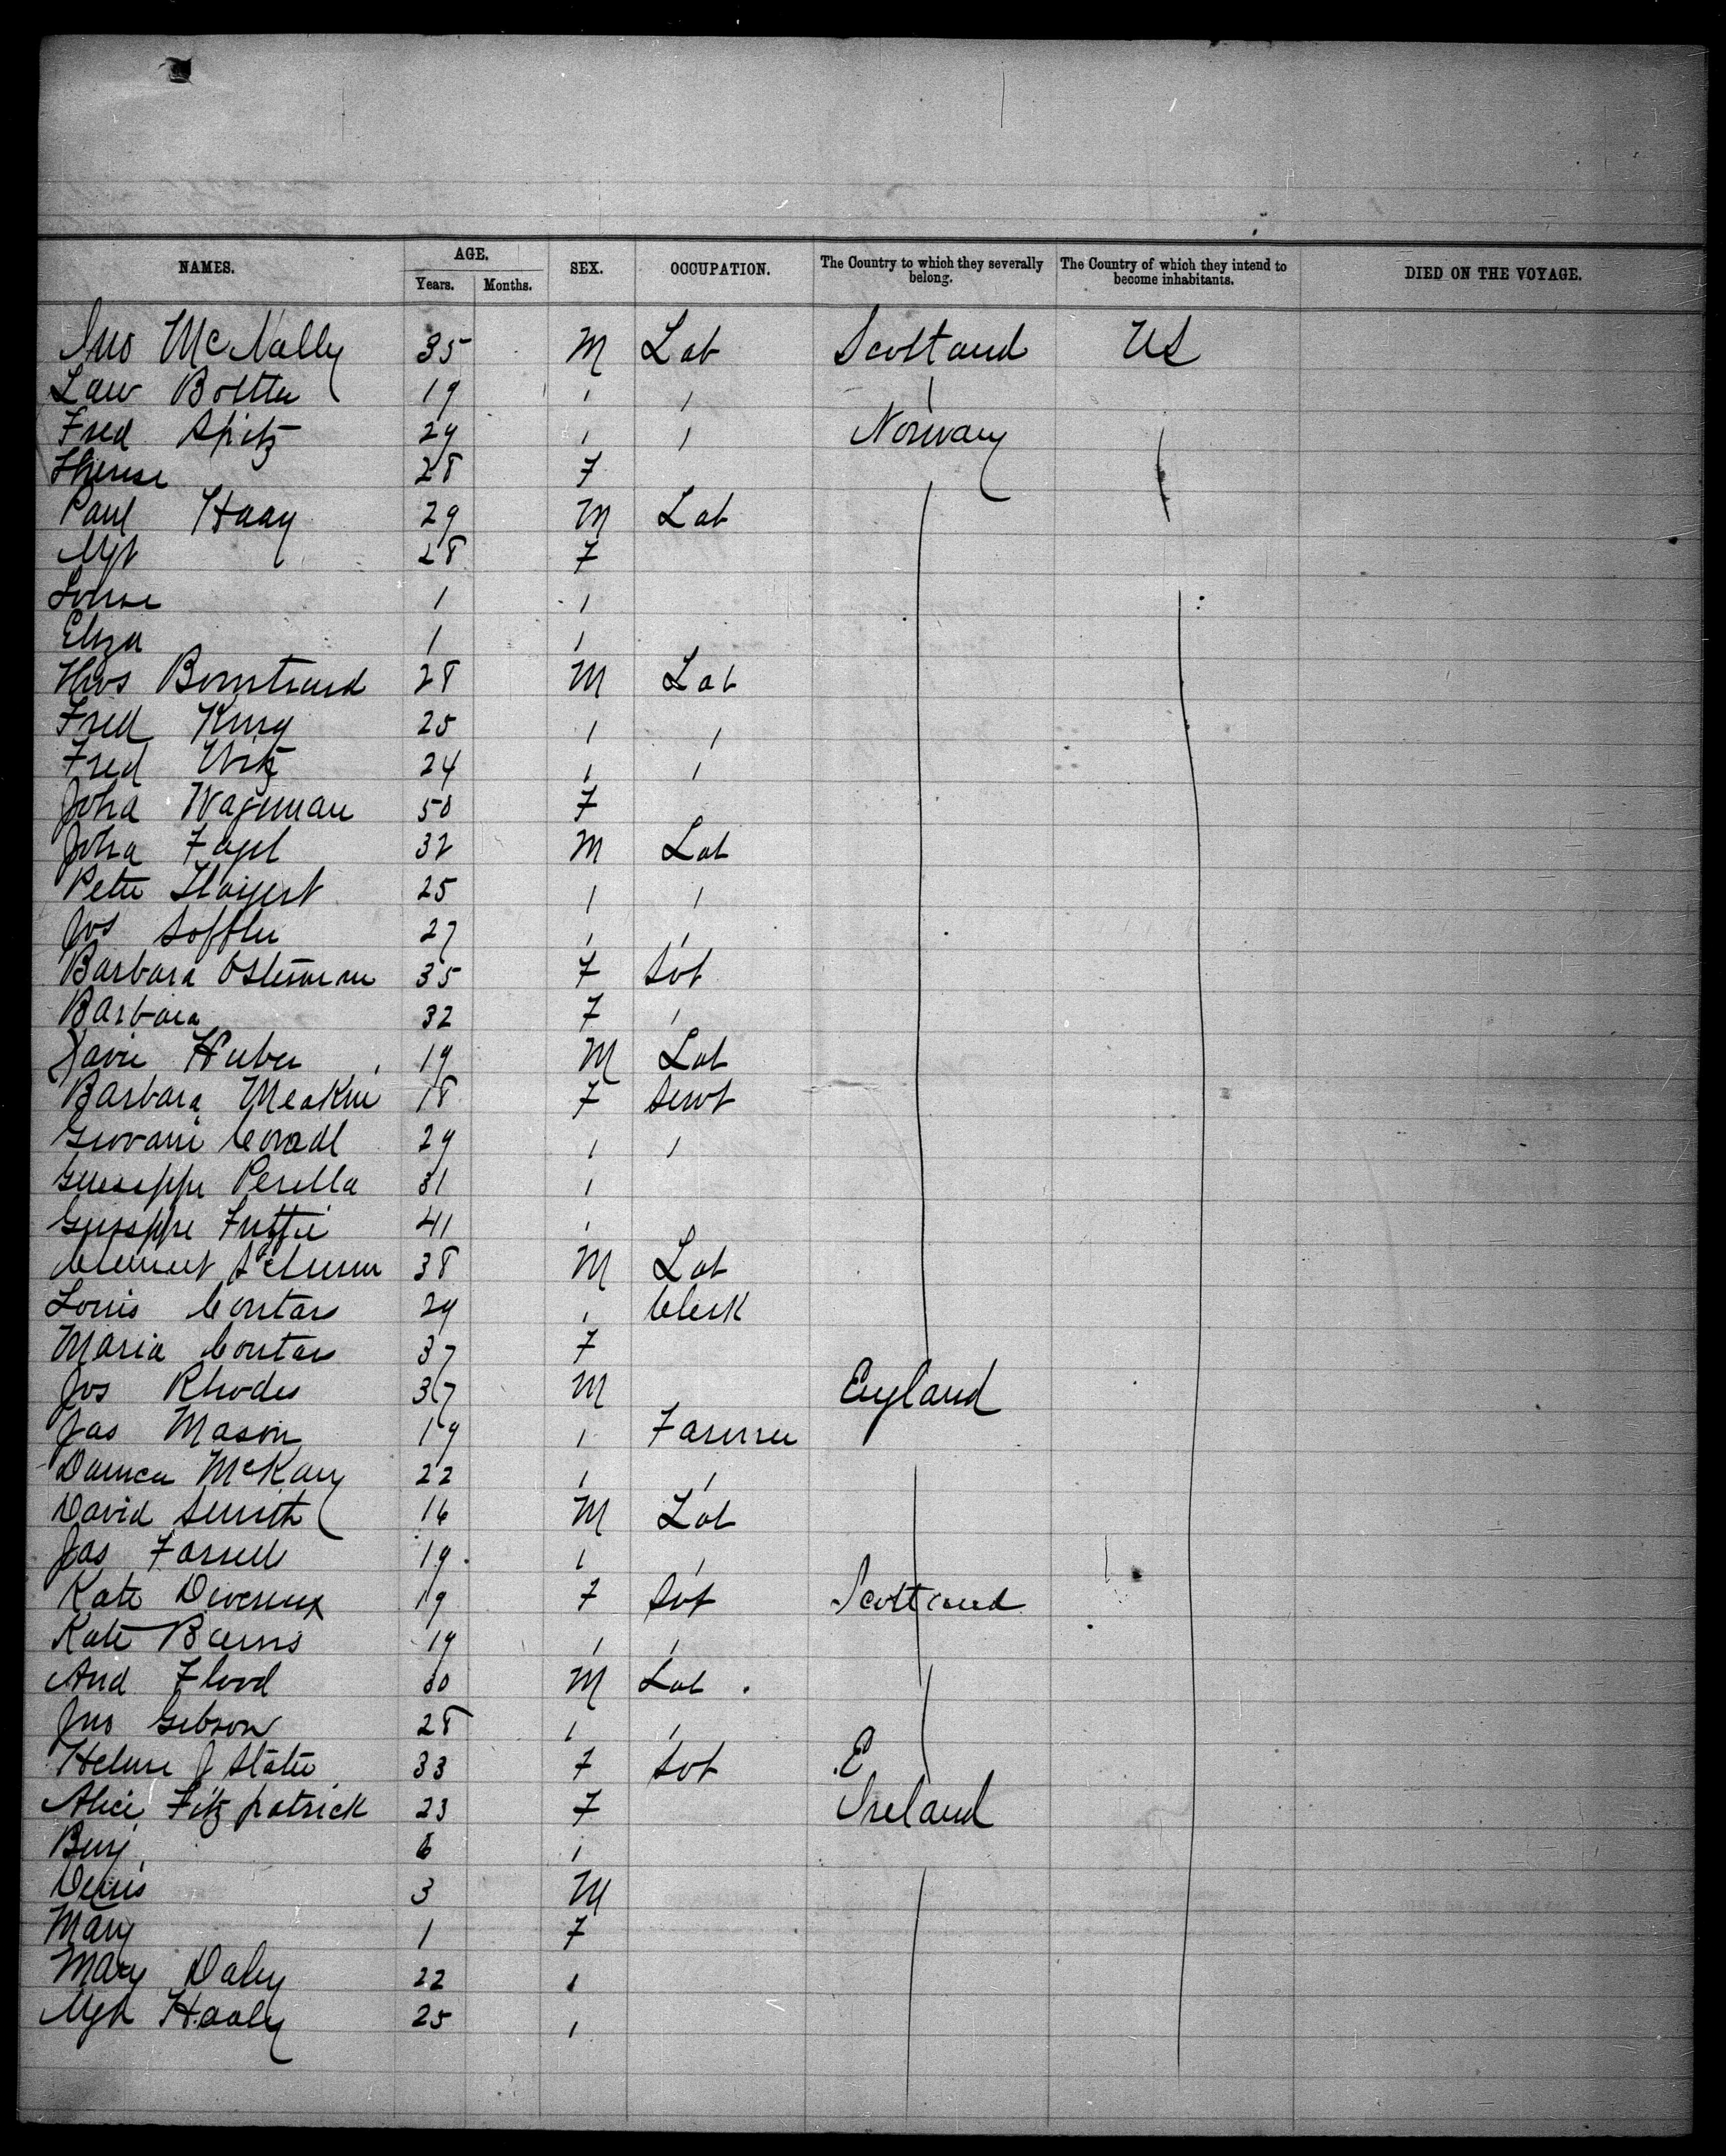 NAMES. AGE. SEX. OCCUPATION. The Country to which they severally belong. The Country of which they intend to become inhabitants. DIED ON THE VOYAGE.
Years. Months.
Jno McNally 35 M Lab Scotland US
Law 19 ı ı ı
Fred Spitz 29 ı ı Norway
Therese 28 F
Paul Haag 29 M Lab
Mgt 28 F
Louise 1 ı
Eliza 1 ı
28 M Lab
Fred King 25 ı ı
Fred 24 ı ı
Joha Wageman 50 F
Joha 32 M Lab
Peter 25 ı ı
Jos Soffler 27 ı ı
Barbara Osterman 35 F Svt
Barbara 32 F ı
Xavie Huber 19 M Lab
Barbara Meakin 18 F Servt
Giovani 29 ı ı
Guiseppe Perella 31 ı
Guiseppe 41 ı
Clement 38 M Lab
Louis Contas 29 ı Clerk
Maria Contas 37 F
Jos Rhodes 37 M England
Jas Mason 19 ı Farmer
McKay 22 ı ı
David Smith 16 M Lab
Jas Farrell 19 ı ı
Kate Devereux 19 F Svt Scotland
Kate Burns 19 ı ı
And Flood 30 M Lab
Jno Gibson 28 ı ı
Helene J Slater 33 F Svt E
Alice Fitzpatrick 23 F Ireland
Benj 6 ı
Denis 3 M
Mary 1 F
Mary Daley 22 ı
Mgt Healey 25 ı